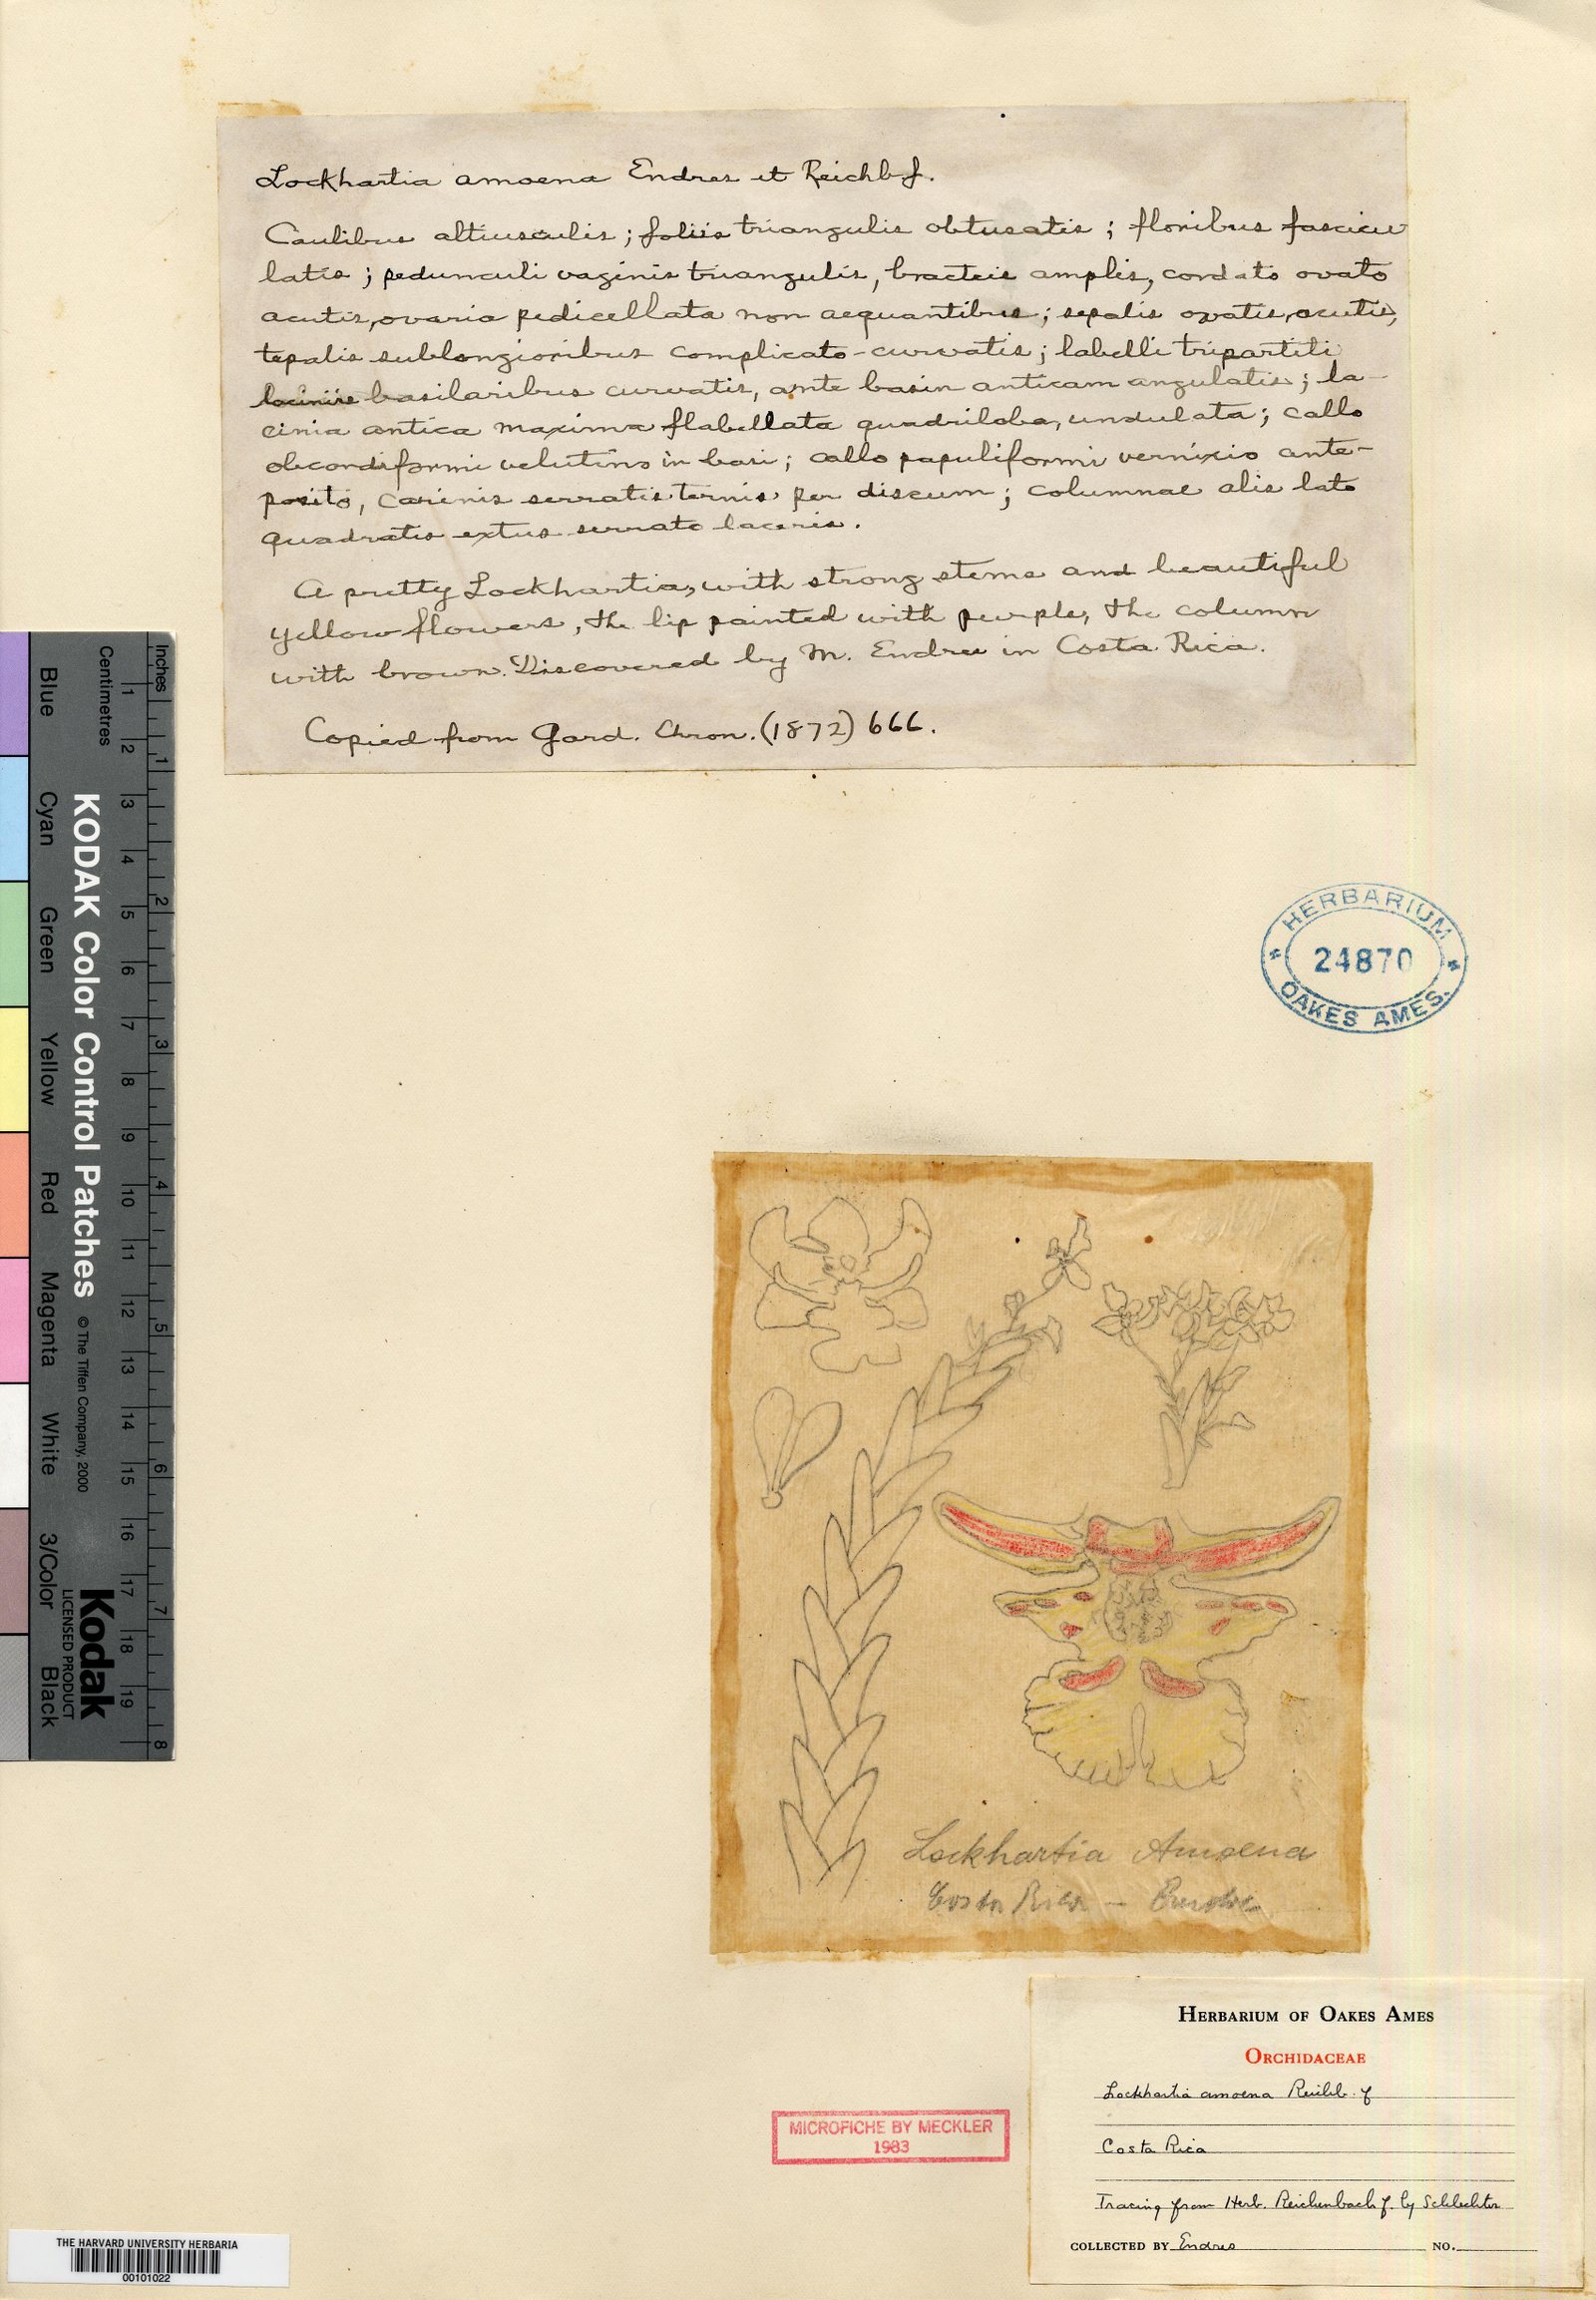 Lockhartia amoena Endres et Reichb f.
Caulibus altiusculis; foliis triangulis obtusatis; floribus fascicu
latis; pedunculi vaginis triangulis, bracteis amplis, cordato ovato
acutis, ovaria pedicellata non aequantibus; sepalis ovatis, acutis,
tepalis sublongioribus complicato-curvatis; labelli tripartiti
laciniis basilaribus curvatis, ante basin anticam angulatis; la-
cinia antica maxima flabellata quadriloba, undulata; callo
obcordiformi velutino in basi; callo papuliformi vernixio ante-
posito, carinis serratis ternis per discum; columnae alis lato
quadratis extus serrato laceris.
A pretty Lockhartia, with strong stems and beautiful
yellow flowers, the lip painted with purple, the column
with brown. Discovered by M. Endres in Costa Rica.
Copied from Gard. Chron. (1872) 666.
HERBARIUM
24870
OAKES AMES.
Lockhartia Amoena
Costa Rica –
HERBARIUM OF OAKES AMES
ORCHIDACEAE
Lockhartia amoena Reichb. f
Costa Rica
Tracing from Herb. Reichenbach f. by Schlechter
COLLECTED BY Endres NO.
MICROFICHE BY MECKLER
1983
THE HARVARD UNIVERSITY HERBARIA
00101022
Inches
1 2 3 4 5 6 7 8
Centimetres
1 2 3 4 5 6 7 8 9 10 11 12 13 14 15 16 17 18 19
KODAK Color Control Patches
© The Tiffen Company, 2000
Kodak
LICENSED PRODUCT
Blue Cyan Green Yellow Red Magenta White 3/Color Black